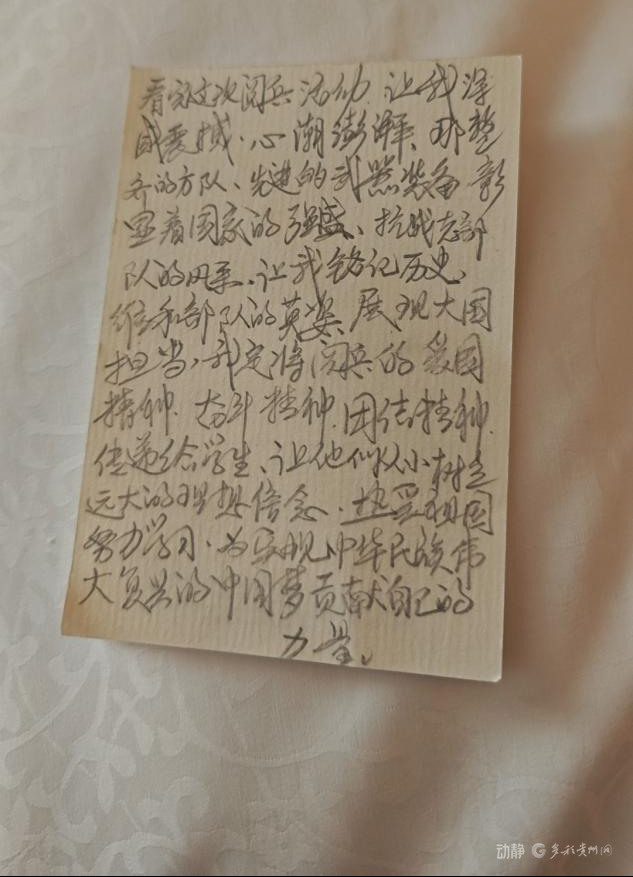 看完这次阅兵活动、让我深
感震撼、心潮澎湃、那整
齐的方队、先进的武器装备彰
显着国家的强盛、抗战老部
队的风采、让我铭记历史、
维和部队的英姿、展现大国
担当、我定将阅兵的爱国
精神、奋斗精神、团结精神、
传递给学生、让他们从小树立
远大的理想信念、热爱祖国
努力学习、为实现中华民族伟
大复兴的中国梦贡献自己的
力量、
动静 多彩贵州网